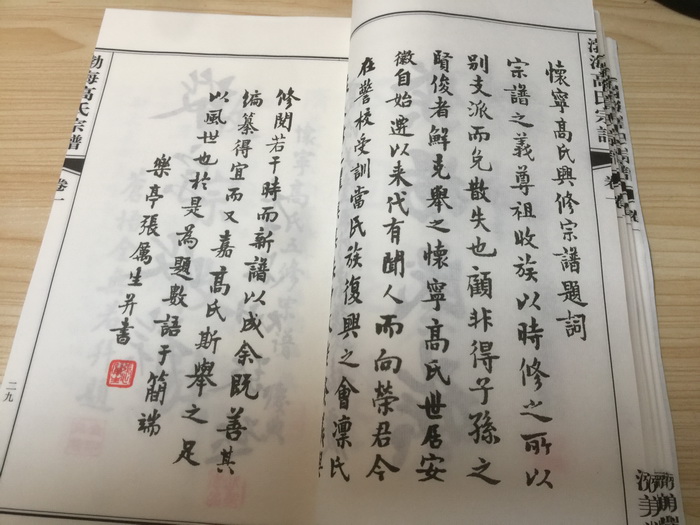 懷寧高氏興修宗譜題詞
宗譜之義尊祖收族以時修之所以
別支派而免散失也顧非得子孫之
賢俊者鮮克舉之懷寧高氏世居安
徽自始遷以來代有聞人而向榮君今
在警校受訓當民族復興之會凜氏
修閱若干時而新譜以成余既善其
編纂得宜而又嘉高氏斯舉之足
以風世也於是為題數語于簡端
樂亭張厲生并書
渤海高氏宗譜
卷一
二九